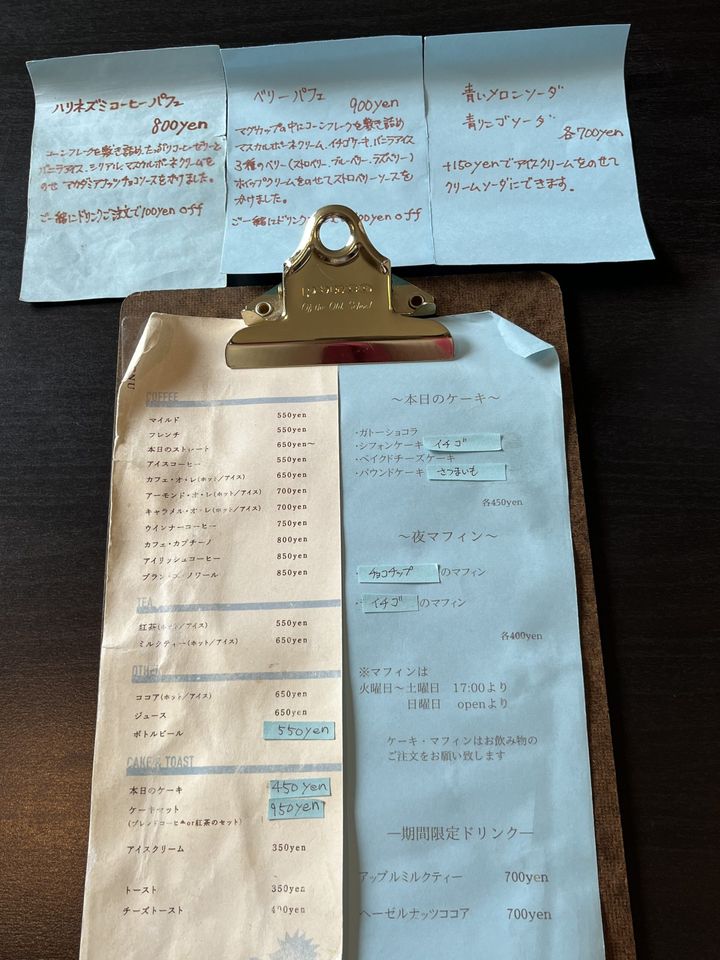 ハリネズミコーヒーパフェ
800yen
コーンフレークを敷き詰め、たっぷりコーヒーゼリーと
バニラアイス、シリアル、マスカルポーネクリームを
のせ マカダミアナッツチョコソースをかけました。
ご一緒にドリンクご注文で100yen off
ベリーパフェ
900yen
マグカップの中にコーンフレークを敷き詰め
マスカルポーネクリーム、イチゴケーキ、バニラアイス
3種のベリー(ストロベリー、ブルーベリー、ラズベリー)
ホイップクリームをのせてストロベリーソースを
かけました。
ご一緒にドリンク 00yen off
青いメロンソーダ
青リンゴソーダ
各700yen
+150yenでアイスクリームをのせて
クリームソーダにできます。
Of the Old School
NU
COFFEE
マイルド 550yen
フレンチ 550yen
本日のストレート 650yen〜
アイスコーヒー 550yen
カフェ・オ・レ(ホット/アイス) 650yen
アーモンド・オ・レ(ホット/アイス) 700yen
キャラメル・オ・レ(ホット/アイス) 700yen
ウインナーコーヒー 750yen
カフェ・カプチーノ 800yen
アイリッシュコーヒー 850yen
ブラン・エ・ノワール 850yen
TEA
紅茶(ホット/アイス) 550yen
ミルクティー(ホット/アイス) 650yen
OTHER
ココア(ホット/アイス) 650yen
ジュース 650yen
ボトルビール 550yen
CAKE & TOAST
本日のケーキ 450yen
ケーキセット 950yen
(ブレンドコーヒーor紅茶のセット)
アイスクリーム 350yen
トースト 350yen
チーズトースト 400yen
〜本日のケーキ〜
・ガトーショコラ
・シフォンケーキ イチゴ
・ベイクドチーズケーキ
・パウンドケーキ さつまいも
各450yen
〜夜マフィン〜
チョコチップ のマフィン
・イチゴ のマフィン
各400yen
※マフィンは
火曜日〜土曜日 17:00より
日曜日 openより
ケーキ・マフィンはお飲み物の
ご注文をお願い致します
―期間限定ドリンク―
アップルミルクティー 700yen
ヘーゼルナッツココア 700yen